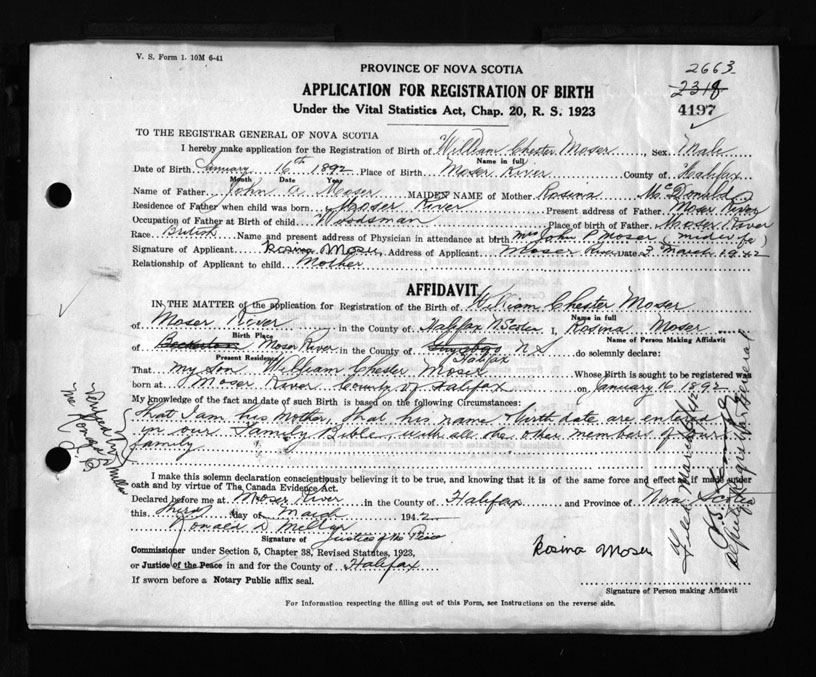 V. S. Form 1. 10M 6-41
PROVINCE OF NOVA SCOTIA
2663
2318
APPLICATION FOR REGISTRATION OF BIRTH
Under the Vital Statistics Act, Chap. 20, R. S. 1923
4197
TO THE REGISTRAR GENERAL OF NOVA SCOTIA
I hereby make application for the Registration of Birth of William Chester Moser, Sex Male
Name in full
Date of Birth January 16th 1892 Place of Birth Moser River County of Halifax
Month Date Year
Name of Father John A. Moser MAIDEN NAME of Mother Rosina McDonald
Residence of Father when child was born Moser River Present address of Father Moser River
Occupation of Father at Birth of child Woodsman Place of birth of Father Moser River
Race British Name and present address of Physician in attendance at birth Mrs John P Moser (midwife)
Signature of Applicant Rosina Moser, Address of Applicant Moser River Date 3 March 1942
Relationship of Applicant to child Mother
AFFIDAVIT
IN THE MATTER of the application for Registration of the Birth of William Chester Moser
Name in full
of Moser River in the County of Halifax I, Rosina Moser
Birth Place Name of Person Making Affidavit
of Moser River in the County of N S do solemnly declare:
Present Residence Halifax
That my son William Chester Moser Whose Birth is sought to be registered was
born at Moser River County of Halifax on January 16 1892
My knowledge of the fact and date of such Birth is based on the following Circumstances:
that I am his mother, that his name & birth date are entered
in our Family Bible, with all the other members of our
family
I make this solemn declaration conscientiously believing it to be true, and knowing that it is of the same force and effect as if made under
oath and by virtue of The Canada Evidence Act.
Declared before me at Moser River in the County of Halifax and Province of Nova Scotia
this third day of March 1942
Ronald D
Signature of Justice of the Peace
Commissioner under Section 5, Chapter 38, Revised Statutes, 1923,
Rosina Moser
or Justice of the Peace in and for the County of Halifax
If sworn before a Notary Public affix seal.
Signature of Person making Affidavit
For Information respecting the filling out of this Form, see Instructions on the reverse side.
Deputy Registrar General